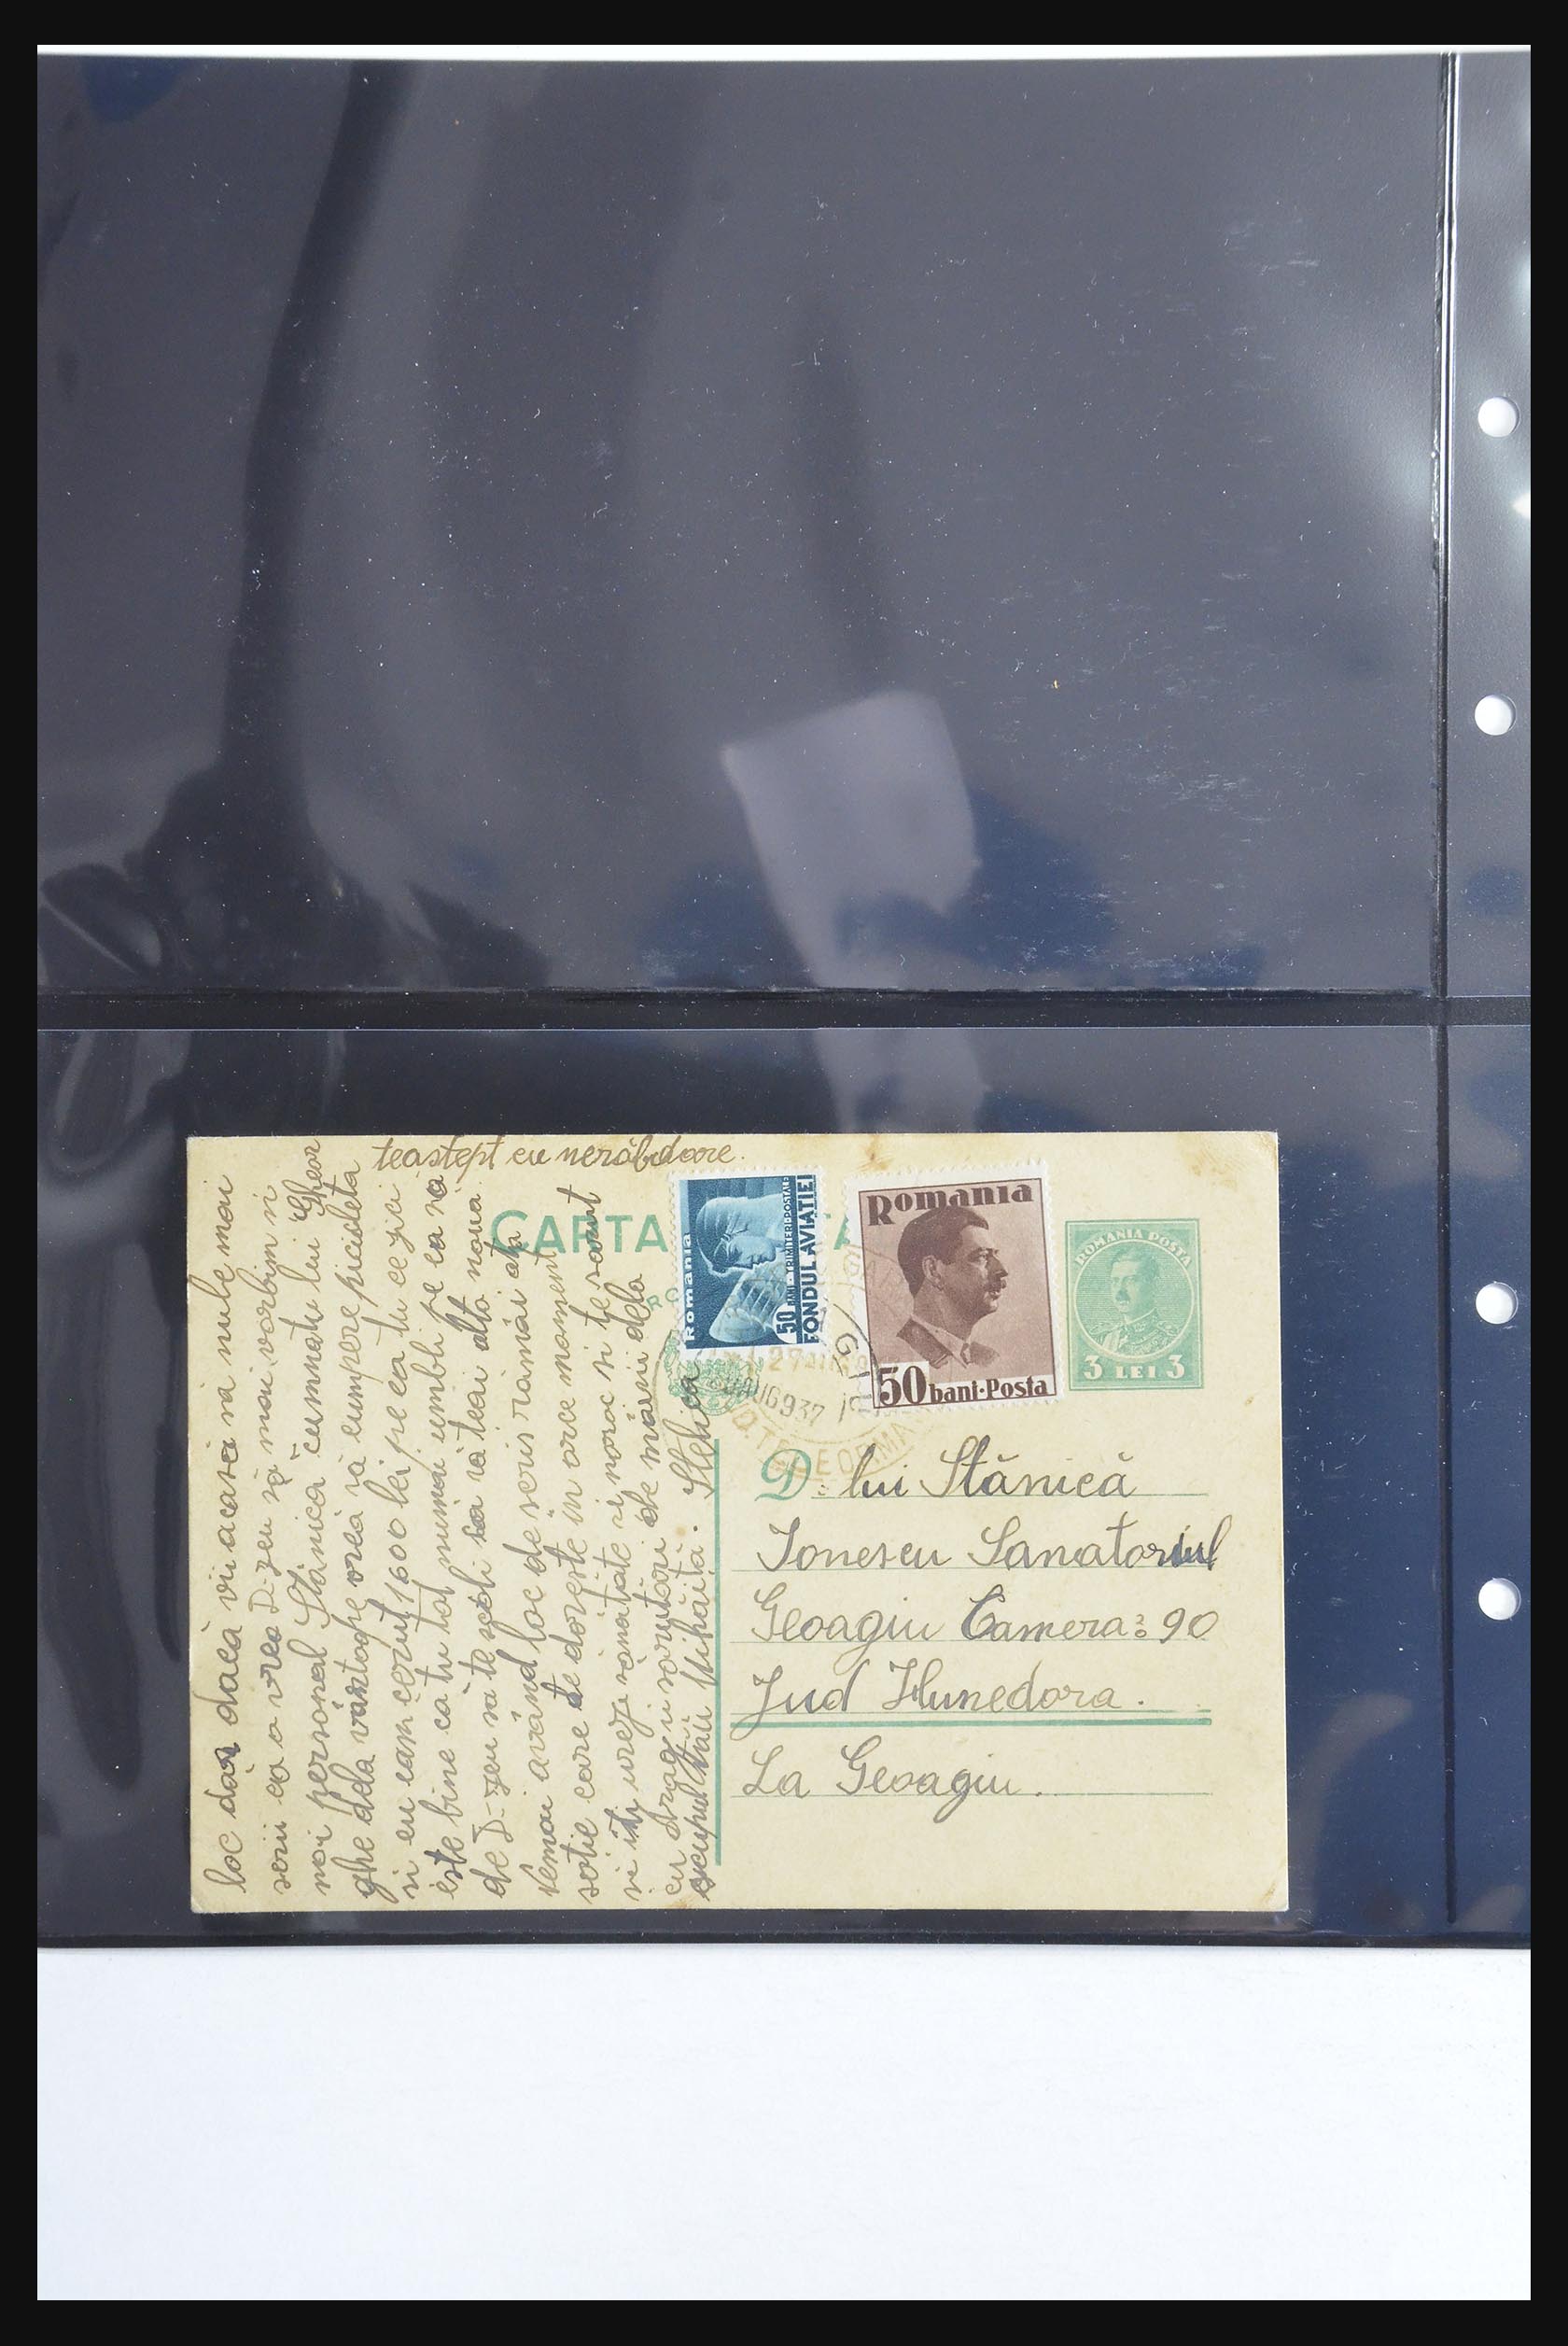 teastept cu nerăbdoare.
CARTA
Romania
50 BANI - TRIMITERI POSTALE
FONDUL AVIATIEI
Romania
50 bani·Posta
ROMANIA POSTA
3 LEI 3
27 AUG 937
D. lui Stănică
Ionescu Sanatoriul
Geoagiu Camera: 90
Jud Hunedora.
La Geoagiu.
loc dar dacă vii acasă să nule mai
scrii ca o vrea D-zeu să mai vorbim si
noi personal Stănică cumnatu lui Gheor
ghe dela vărtoape vrea să cumpere bicicleta
si eu iam cerut 1600 lei pe ea tu ce zici
este bine ca tu tot numai umbli pe ea să
de D-zeu să te scoli sa să teai alta nouă
Nemai având loc de scris rămâi ata
sotie care te doreste în orce moment
si iti urez sănătate si noroc si te sarut
cu drag si sarutări de mâini dela
Mihăită. Stenca